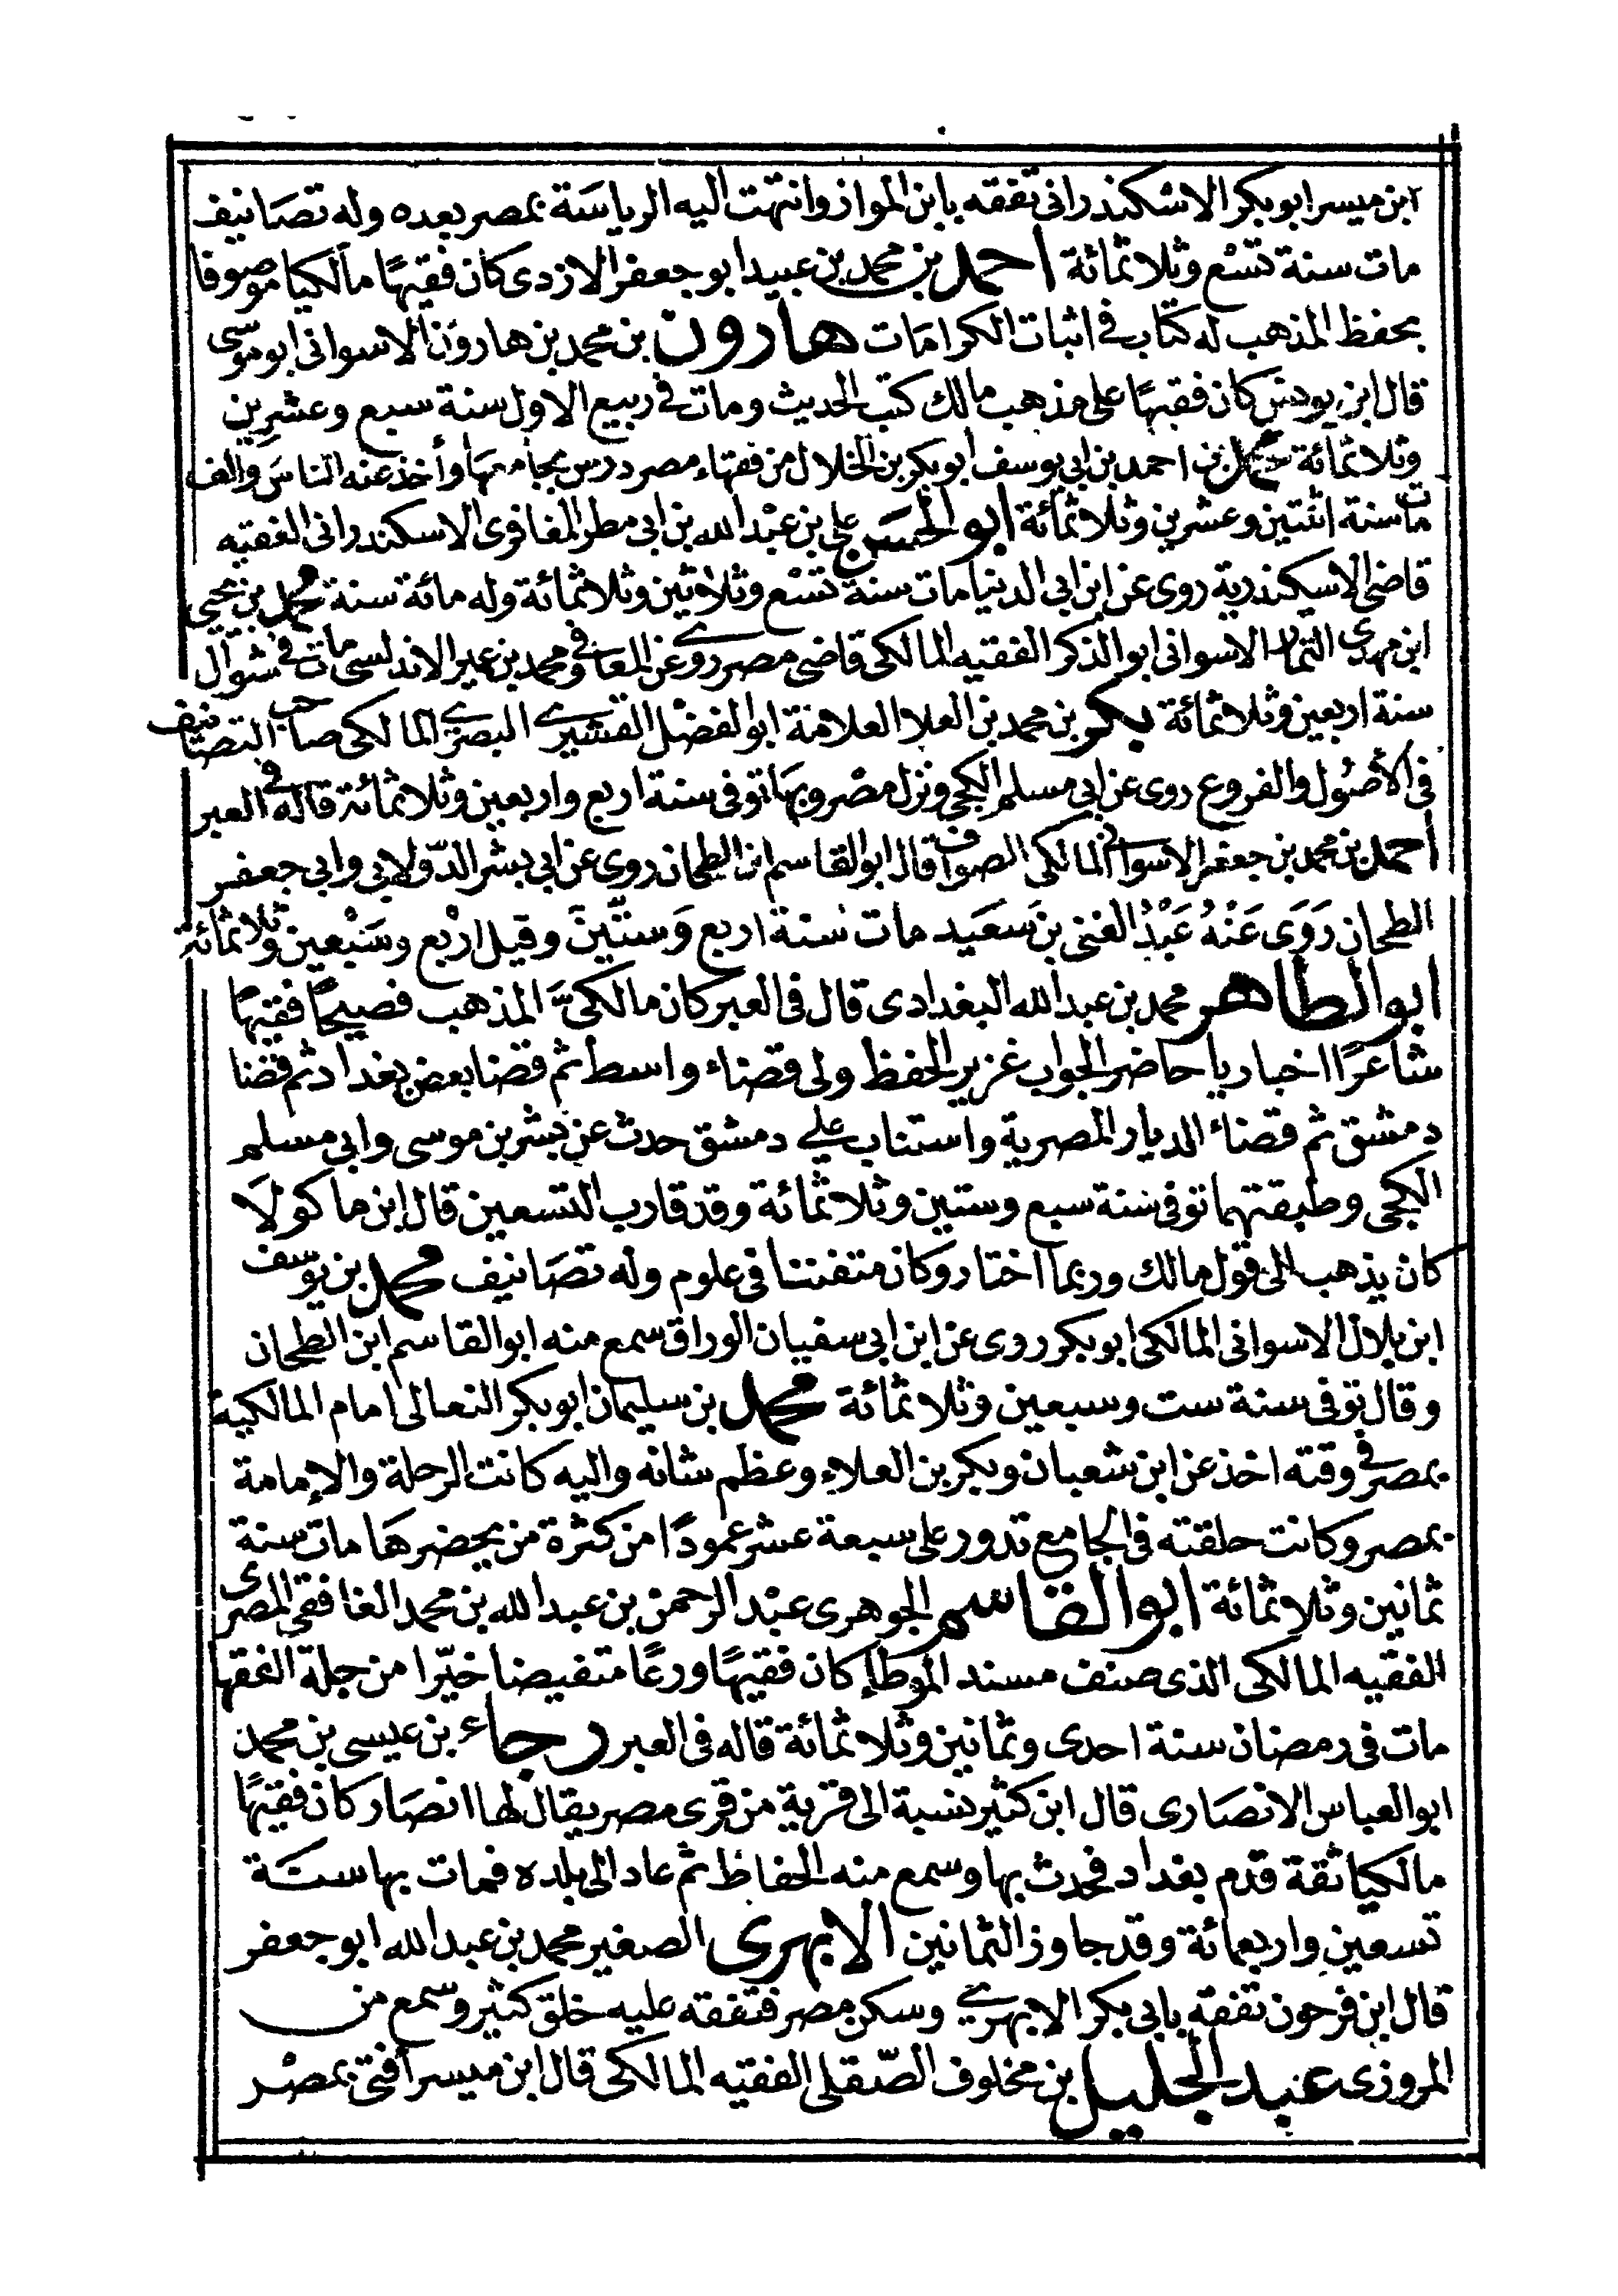 ابن ميسر ابو بكر الاشكندرانى تفقه بابن المواز وانتهت اليه الرياسة بمصر بعده وله تصانيف
مات سنة تسع وثلاثمائة احمد بن محمد بن عبيد ابو جعفر الازدى كان فقيهًا مالكيا موصوفا
بحفظ المذهب له كتاب فى اثبات الكرامات هارون بن محمد بن هارون الاسوانى ابو موسى
قال ابن يونس كان فقيهًا على مذهب مالك كتب الحديث ومات فى ربيع الاول سنة سبع وعشرين
وثلاثمائة محمد بن احمد بن ابى يوسف ابو بكر بن الخلال من فقهاء مصر درس بجامعها وأخذ عنه الناس والف
مات سنة اثنتين وعشرين وثلاثمائة ابو الحسن على بن عبد الله بن ابى مطر المغافرى الاسكندرانى الفقيه
قاضى الاسكندرية روى عن ابن ابى الدنيا مات سنة تسع وثلاثين وثلاثمائة وله مائة سنة محمد بن يحيى
ابن مهدى التمار الاسوانى ابو الذكر الفقيه المالكى قاضى مصر روى عن المعافى ومحمد بن عير الاندلسى مات فى شوال
سنة اربعين وثلاثمائة بكر بن محمد بن العلا العلامة ابو الفضل القشيرى البصرى المالكى صاحب التصانيف
فى الأصُول والفروع روى عن ابى مسلم الكجى ونزل مصر وبها توفى سنة اربع واربعين وثلاثمائة قاله فى العبر
أحمد بن محمد بن جعفر الاسوانى المالكى الصواف قال ابو القاسم ابن الطحان روى عن ابى بشر الدّولابى وابى جعفر
الطحان رَوَى عَنْهُ عَبْدُ الغنى بن سَعَيد مات سنة اربع وَستّينَ وقيل اربع وسَبْعين وثلاثمائة
ابو الطاهر محمد بن عبد الله البغدادى قال فى العبر كان مالكىَّ المذهب فصيحًا فقيهًا
شاعرًا اخباريا حاضر الجواب غزير الحفظ ولى قضاء واسط ثم قضا بعض بغداد ثم قضا
دمشق ثم قضاء الديار المصرية واستناب على دمشق حدث عن بشر بن موسى وابى مسلم
الكجى وطبقتهما توفى سنة سبع وستين وثلاثمائة وقد قارب التسعين قال ابن ماكولَا
كان يذهب الى قول مالك وربما اختار وكان متفننا فى علوم وله تصانيف محمد بن يوسف
ابن بلال الاسوانى المالكى ابو بكر روى عن ابن ابى سفيان الوراق سمع منه ابو القاسم ابن الطحان
وقال توفى سنة ست وسبعين وثلاثمائة محمد بن سليمان ابو بكر النعالى امام المالكية
بمصر فى وقته اخذ عن ابن شعبان وبكر بن العلاء وعظم شانه واليه كانت الرحلة والإمامة
بمصر وكانت حلقته فى الجامع تدور على سبعة عشر عمودًا من كثرة من يحضرها مات سنة
ثمانين وثلاثمائة ابو القاسم الجوهرى عبْد الرحمن بن عبد الله بن محمد الغافقى المصرى
الفقيه المالكى الذى صنف مسند الموطإ كان فقيهًا ورعًا متفيضا خيّرا من جلة الفقها
مات فى رمضان سنة احدى وثمانين وثلاثمائة قاله فى العبر رجاء بن عيسى بن محمد
ابو العباس الانصارى قال ابن كثير نسبة الى قرية من قرى مصر يقال لها انصار كان فقيهًا
مالكيا ثقة قدم بغداد فحدث بها وسمع منه الحفاظ ثم عاد الى بلده فمات بها سنة
تسعين واربعمائة وقد جاوز الثمانين الابهرى الصغير محمد بن عبد الله ابو جعفر
قال ابن فرحون تفقه بابى بكر الابهرى وسكن مصر فتفقه عليه خلق كثير وسمع من
المروزى عبد الجليل بن مخلوف الصّقلى الفقيه المالكى قال ابن ميسر أفتى بمصْر